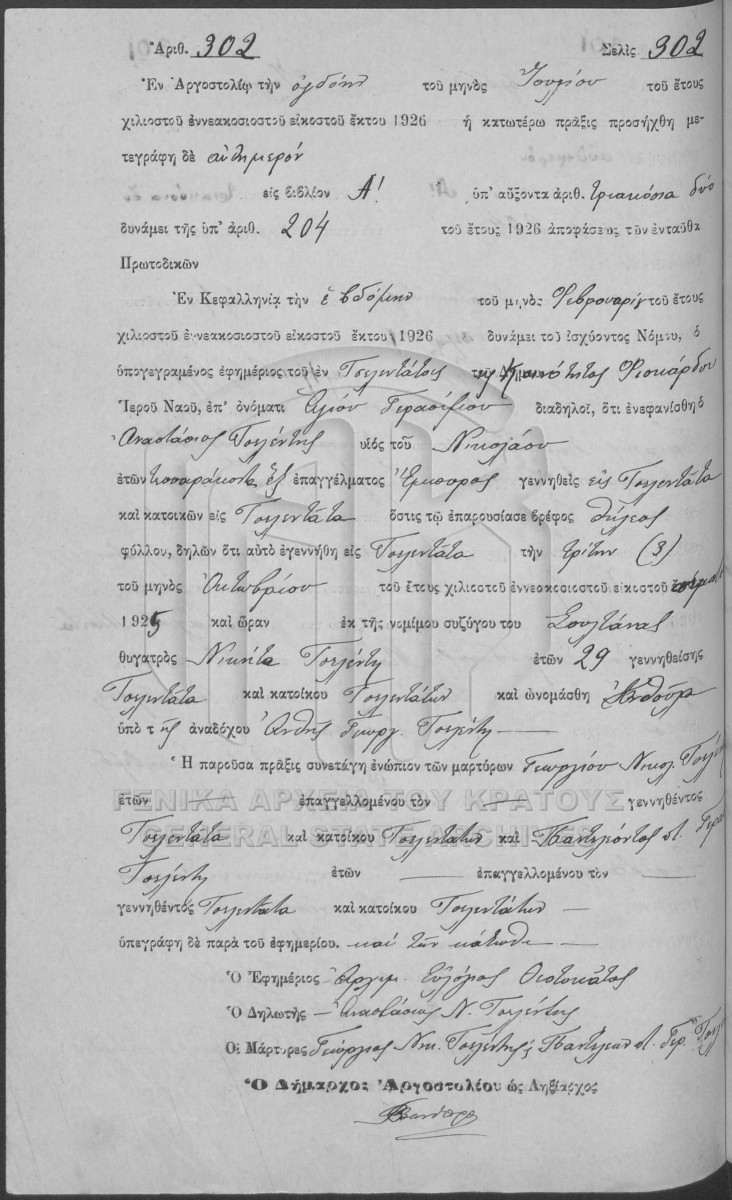 Ἀριθ. 302 Σελὶς 302
Ἐν Ἀργοστολίῳ τὴν ὀγδόην τοῦ μηνὸς Ἰουλίου τοῦ ἔτους
χιλιοστοῦ ἐννεακοσιοστοῦ εἰκοστοῦ ἕκτου 1926 ἡ κατωτέρω πρᾶξις προσήχθη με-
τεγράφη δὲ αὐθημερόν
εἰς βιβλίον Α! ὑπ' αὔξοντα ἀριθ. τριακόσια δύο
δυνάμει τῆς ὑπ' ἀριθ. 204 τοῦ ἔτους 1926 ἀποφάσεως τῶν ἐνταῦθα
Πρωτοδικῶν
Ἐν Κεφαλληνίᾳ τὴν ἑβδόμην τοῦ μηνὸς Φεβρουαρίου τοῦ ἔτους
χιλιοστοῦ ἐννεακοσιοστοῦ εἰκοστοῦ ἕκτου 1926 δυνάμει τοῦ ἰσχύοντος Νόμου, ὁ
ὑπογεγραμένος ἐφημέριος τοῦ ἐν Τσελεντάτοις τῆς Κοινότητος Φισκάρδου
Ἱεροῦ Ναοῦ, ἐπ' ὀνόματι Ἁγίου Γερασίμου διαδηλοῖ, ὅτι ἐνεφανίσθη ὁ
Ἀναστάσιος Τσελέντης υἱὸς τοῦ Νικολάου
ἐτῶν τεσσαράκοντα ἕξ ἐπαγγέλματος Ἔμπορος γεννηθεὶς εἰς Τσελεντάτα
καὶ κατοικῶν εἰς Τσελεντάτα ὅστις τῷ ἐπαρουσίασε βρέφος θήλεος
φύλλου, δηλῶν ὅτι αὐτὸ ἐγεννήθη εἰς Τσελεντάτα τὴν τρίτην (3)
τοῦ μηνὸς Ὀκτωβρίου τοῦ ἔτους χιλιοστοῦ ἐννεακοσιοστοῦ εἰκοστοῦ
1925 καὶ ὥραν ἐκ τῆς νομίμου συζύγου του Σουλτάνας
θυγατρὸς Νικήτα Τσελέντη ἐτῶν 29 γεννηθείσης
Τσελεντάτα καὶ κατοίκου Τσελεντάτων καὶ ὠνομάσθη Ἀνθούλα
ὑπὸ τῆς ἀναδόχου Ἀνθῆς Γεωργ. Τσελέντη
Ἡ παροῦσα πρᾶξις συνετάγη ἐνώπιον τῶν μαρτύρων Γεωργίου Νικολ. Τσελέν
ἐτῶν ἐπαγγελλομένου τὸν γεννηθέντος
ΓΕΝΙΚΑ ΑΡΧΕΙΑ ΤΟΥ ΚΡΑΤΟΥΣ
GENERAL STATE ARCHIVES
Τσελεντάτα καὶ κατοίκου Τσελεντάτων καὶ Παντελέοντος
Τσελέντη ἐτῶν ἐπαγγελλομένου τὸν
γεννηθέντος Τσελεντάτα καὶ κατοίκου Τσελεντάτων
ὑπεγράφη δὲ παρὰ τοῦ ἐφημερίου. καὶ τῶν κάτωθι
Ὁ Ἐφημέριος Ἀρχιμ. Εὐλόγιος Θεοτοκάτος
Ὁ Δηλωτὴς Ἀναστάσιος Ν. Τσελέντης
Οἱ Μάρτυρες Γεώργιος Νικ. Τσελέντης Γερ. Τσελ
Ὁ Δήμαρχος Ἀργοστολίου ὡς Ληξίαρχος